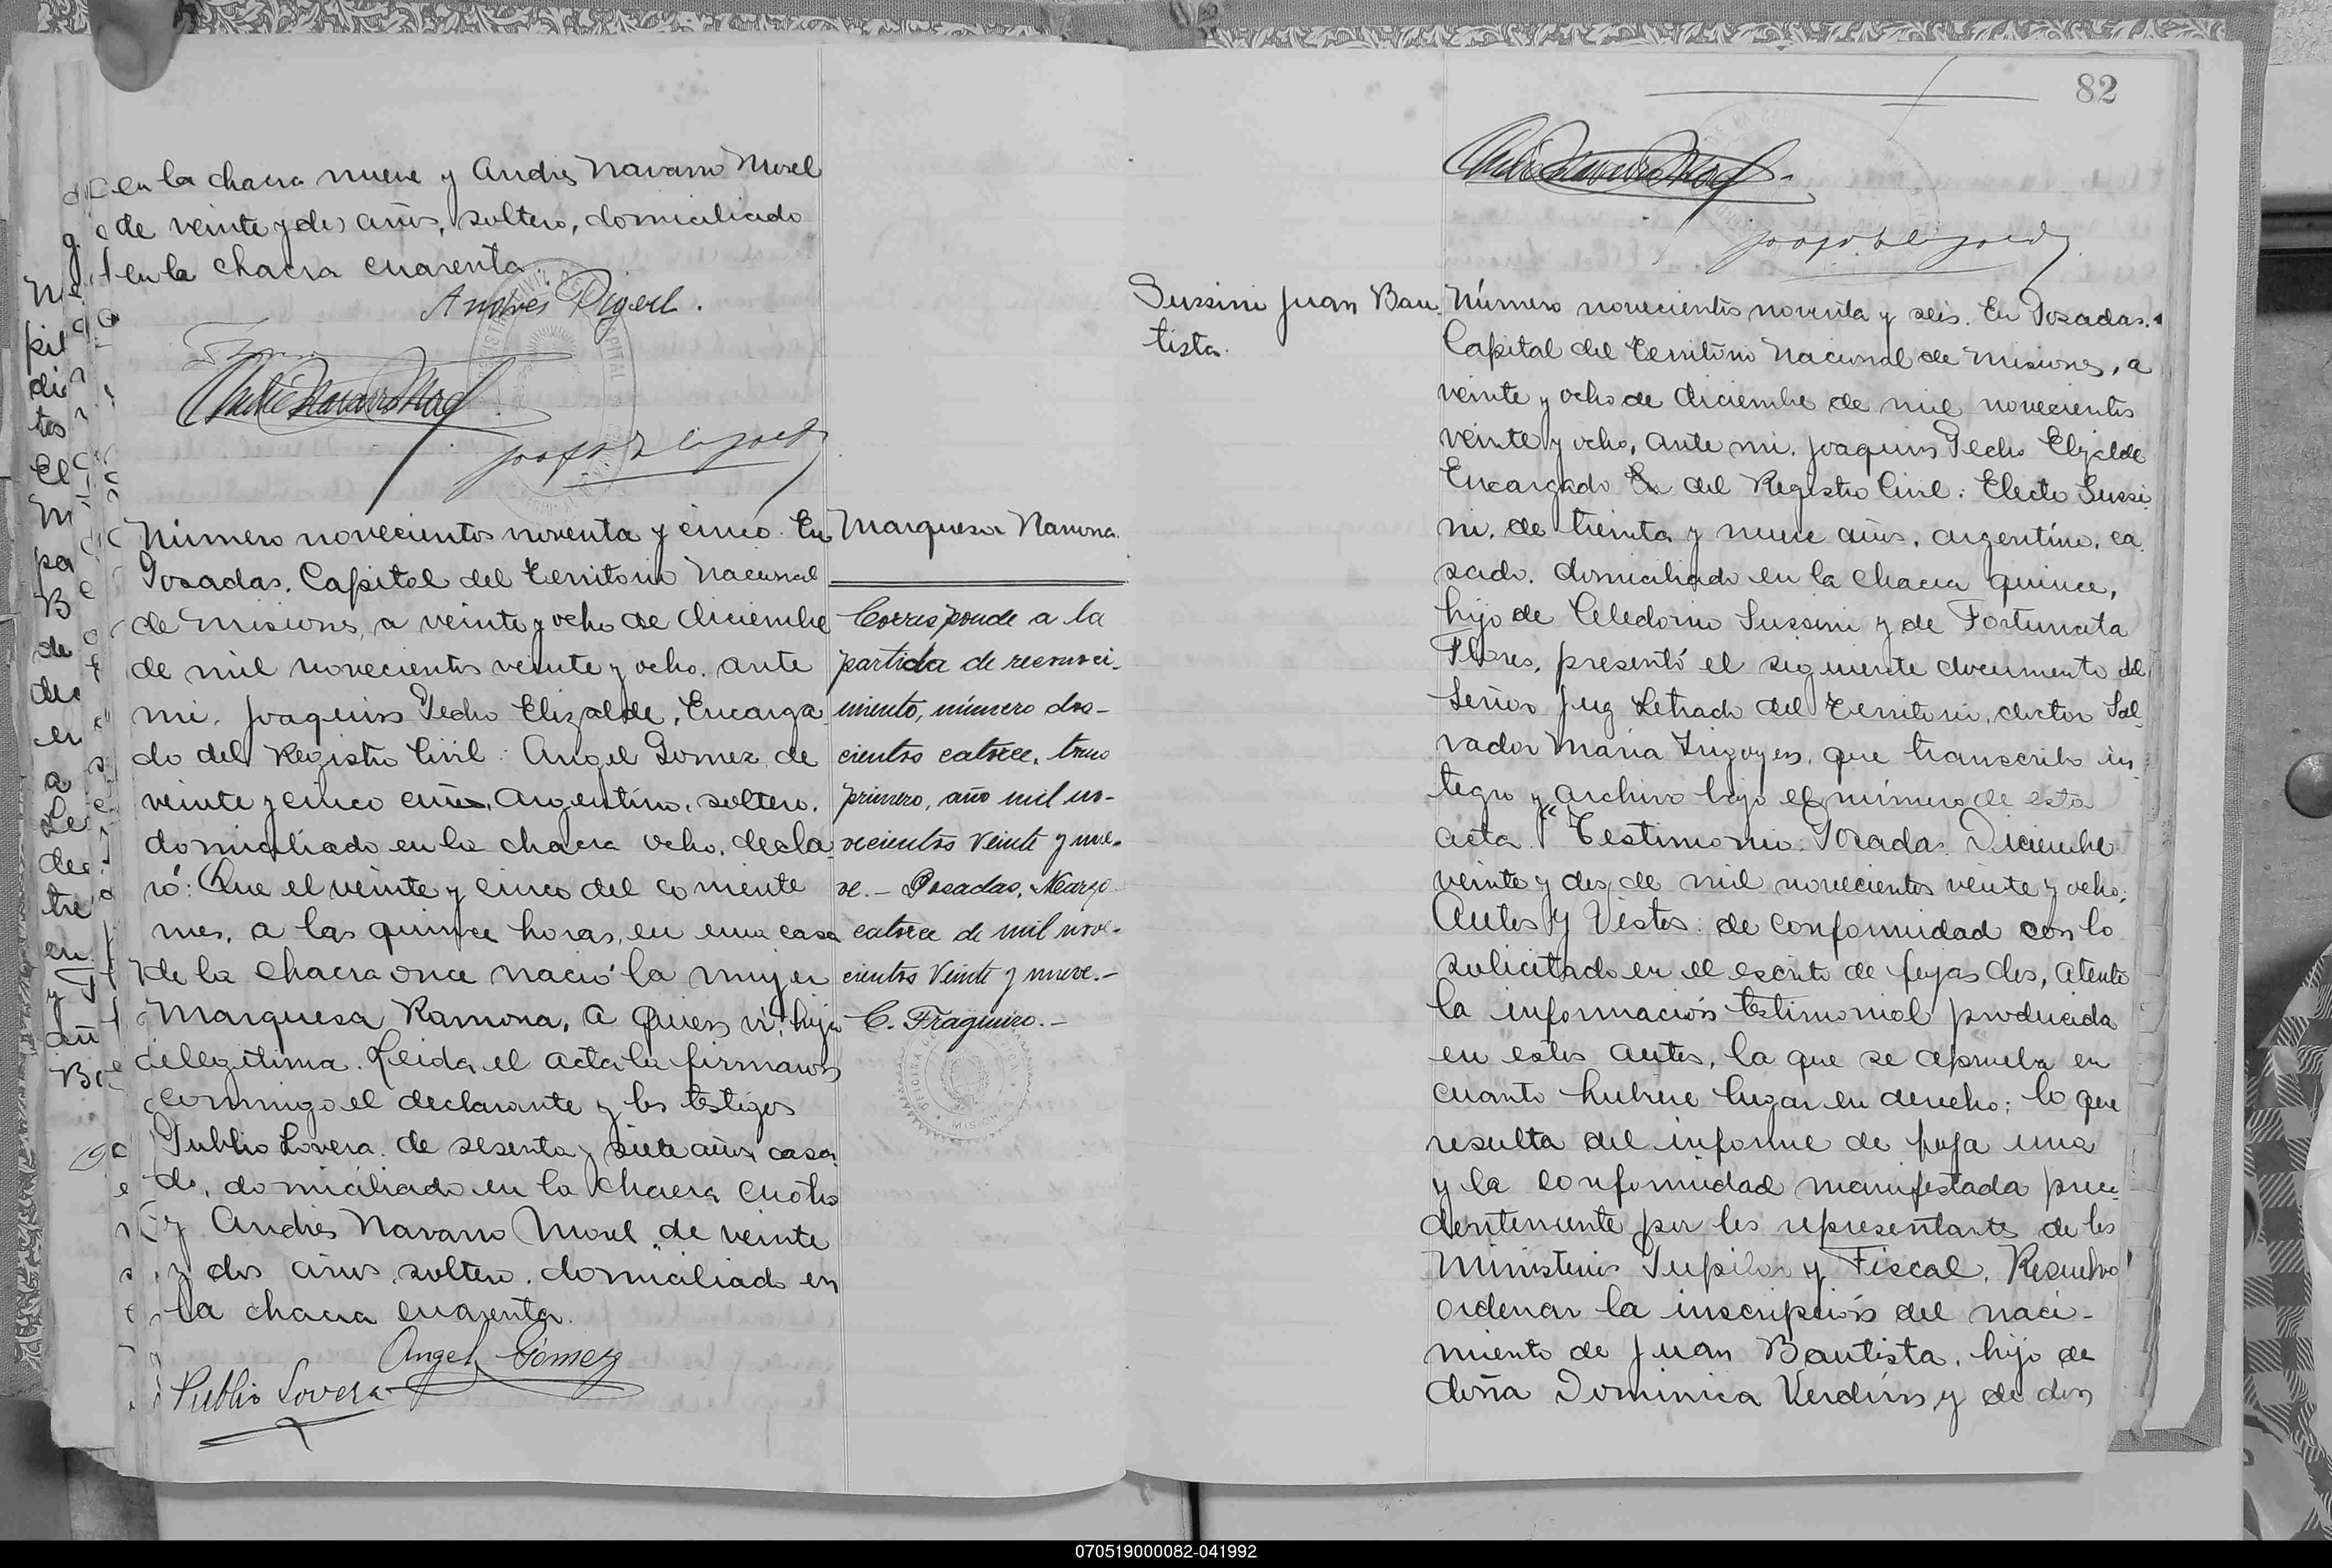 en la chacra nueve y Andres Navarro Morel
de veinte y dos años, soltero, domiciliado
en la chacra cuarenta
Andres Rigerl.
Número novecientos noventa y cinco. En
Posadas. Capital del Territorio Nacional
de Misiones, a veinte y ocho de diciembre
de mil novecientos veinte y ocho. ante
mi. Joaquin Pedro Elizalde, Encarga
do del Registro Civil: Angel Gomez, de
veinte y cinco años, argentino, soltero,
domiciliado en la chacra ocho, decla
ró: Que el veinte y cinco del corriente
mes, a las quince horas, en una casa
de la chacra once nació la mujer
Marquesa Ramona, a quien ví; hija
ilegitima. Leida el acta la firmaron
conmigo el declarante y los testigos
Publio Lovera. de sesenta y siete años, casa
do, domiciliado en la chacra cuatro
y Andrés Navarro Morel, de veinte
y dos años, soltero, domiciliado en
la chacra cuarenta.
Angel Gómez
Publio Lovera
Marquesa Ramona.
Corresponde a la
partida de reconoci-
miento, número dos-
cientos catorce, tomo
primero, año mil no-
vecientos veinte y nue-
ve. - Posadas, Marzo
catorce de mil nove-
cientos veinte y nueve. -
C. Fragueiro. -
82
Sussini Juan Bau
tista.
Número novecientos noventa y seis. En Posadas.
Capital del Territorio Nacional de Misiones, a
veinte y ocho de diciembre de mil novecientos
veinte y ocho, ante mi. Joaquin Pedro Elizalde
Encargado del Registro Civil: Electo Sussi
ni, de treinta y nueve años, argentino, ca
sado, domiciliado en la chacra quince,
hijo de Celedonio Sussini y de Fortunata
Flores, presentó el siguiente documento del
Señor Juez Letrado del Territorio, doctor Sal
vador Maria Irigoyen, que transcribo in
tegro y archivo bajo el número de esta
acta. "Testimonio. Posadas. Diciembre
veinte y dos de mil novecientos veinte y ocho.
Autos y Vistos: de conformidad con lo
solicitado en el escrito de fojas dos, atento
la información testimonial producida
en estos autos, la que se aprueba en
cuanto hubiere lugar en derecho; lo que
resulta del informe de foja una
y la conformidad manifestada prece
dentemente por los representantes de los
Ministerios Pupilar y Fiscal, Resuelvo:
ordenar la inscripción del naci-
miento de Juan Bautista, hijo de
doña Dominica Verdún y de don
070519000082-041992